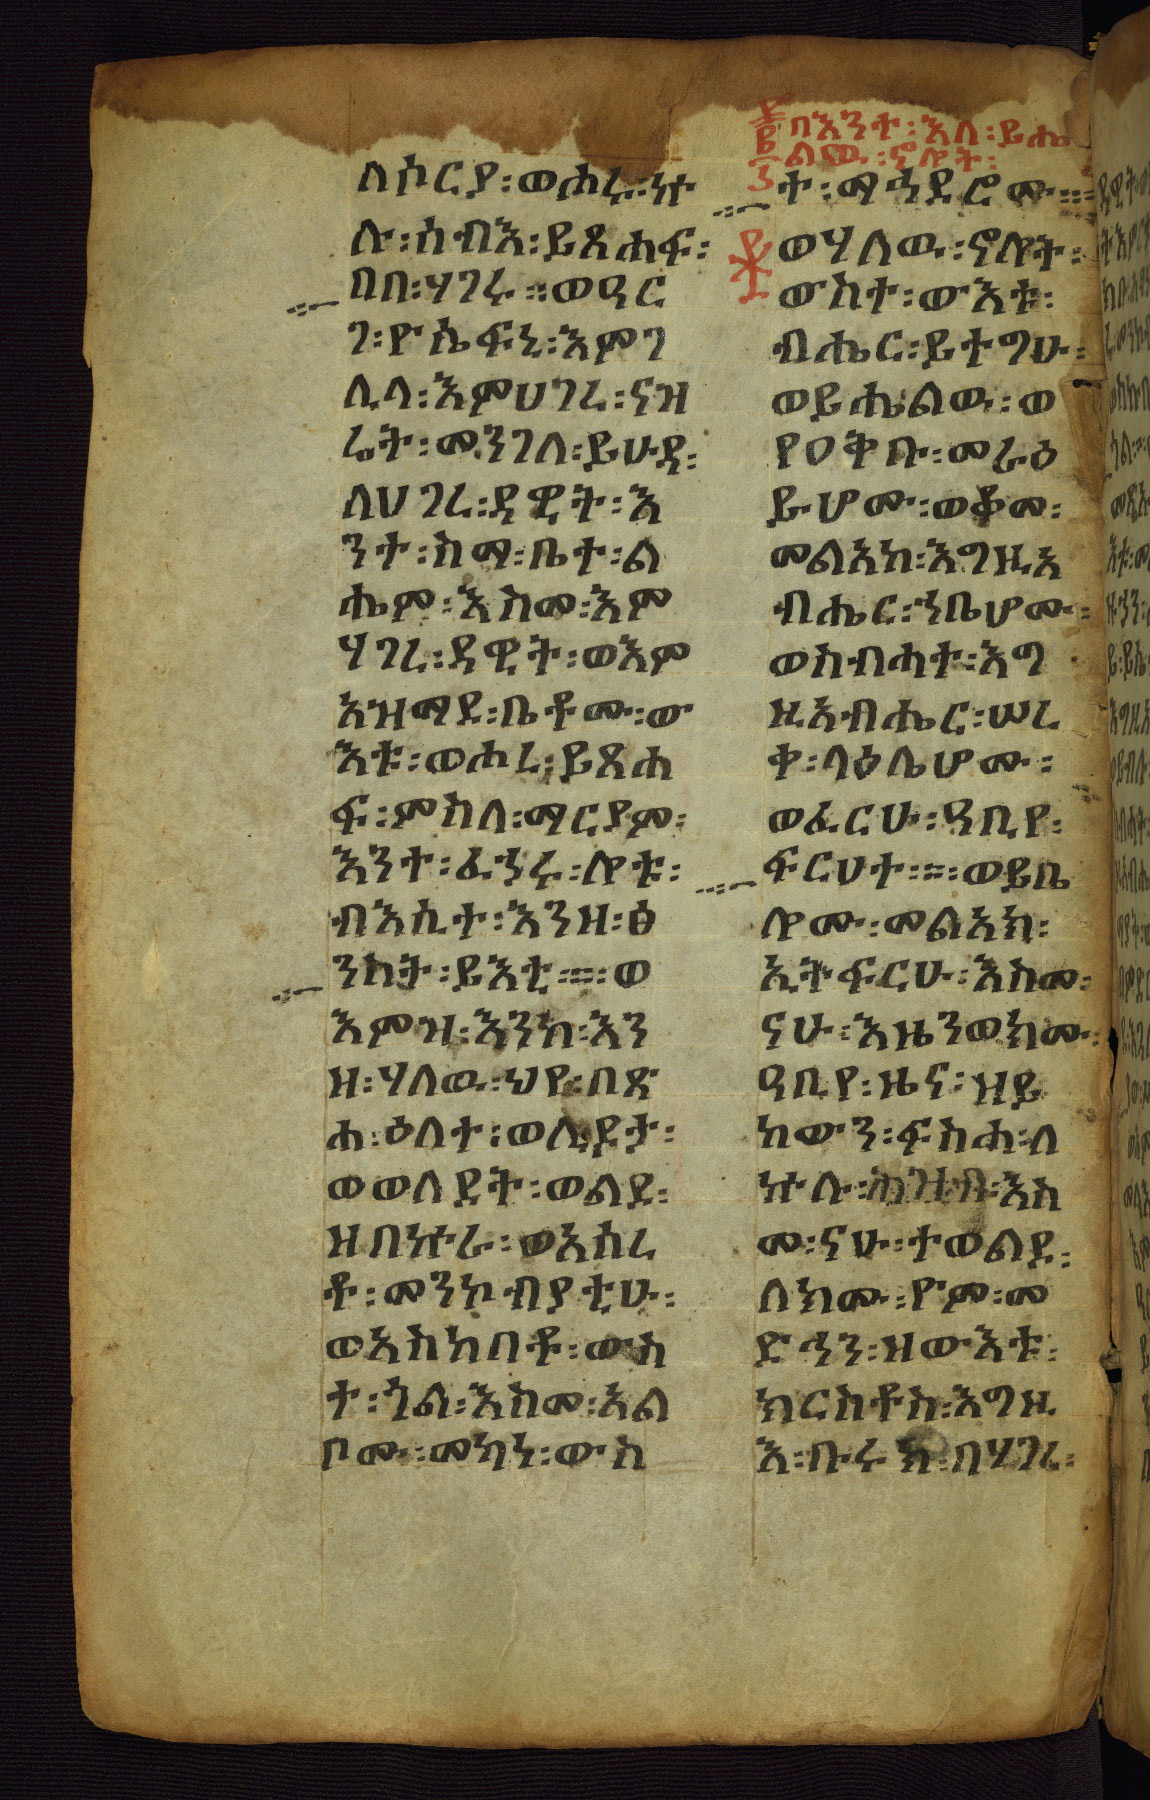 ለሶርያ፡ወሖሩ፡ኵ
ሉ፡ሰብእ፡ይጸሐፍ፡
በበ፡ሃገሩ፡፡ወዓር
ገ፡ዮሴፍኒ፡እምገ
ሊላ፡እምሀገረ፡ናዝ
ሬት፡መንገለ፡ይሁዳ፡
ለሀገረ፡ዳዊት፡እ
ንተ፡ስማ፡ቤተ፡ል
ሔም፡እስመ፡እም
ሃገረ፡ዳዊት፡ወእም
አዝማደ፡ቤቶሙ፡ው
እቱ፡ወሖረ፡ይጸሐ
ፍ፡ምስለ፡ማርያም፡
እንተ፡ፈኀሩ፡ሎቱ፡
ብእሲተ፡እንዘ፡ፅ
ንስት፡ይእቲ፡፡ወ
እምዝ፡እንከ፡እን
ዘ፡ሃለዉ፡ህየ፡በጽ
ሐ፡ዕለተ፡ወሊዶታ፡
ወወለደት፡ወልደ፡
ዘበኵራ፡ወአሰረ
ቶ፡መንኮብያቲሁ፡
ወአስከበቶ፡ውስ
ተ፡ጎል፡እስመ፡አል
ቦሙ፡መካነ፡ውስ
በእንተ፡እለ፡ይሔ
ልዉ፡ኖሎት፡
ተ፡ማኅደሮሙ፡፡
ወሃለዉ፡ኖሎት፡
ውስተ፡ውእቱ፡
ብሔር፡ይተግሁ፡
ወይሔልዉ፡ወ
የዐቅቡ፡መራዕ
ይሆሙ፡ወቆመ፡
መልአከ፡እግዚአ
ብሔር፡ኀቤሆሙ፡
ወስብሓተ፡እግ
ዚአብሔር፡ሠረ
ቀ፡ላዕሌሆሙ፡
ወፈርሁ፡ዓቢየ፡
ፍርሀተ፡፡ወይቤ
ሎሙ፡መልአክ፡
ኢትፍርሁ፡እስመ፡
ናሁ፡እዜንወክሙ፡
ዓቢየ፡ዜና፡ዘይ
ከውን፡ፍስሐ፡ለ
ኵሉ፡ሕዝብ፡እስ
መ፡ናሁ፡ተወልደ፡
ለክሙ፡ዮም፡መ
ድኅን፡ዘውእቱ፡
ክርስቶስ፡እግዚ
እ፡ቡሩክ፡በሃገረ፡